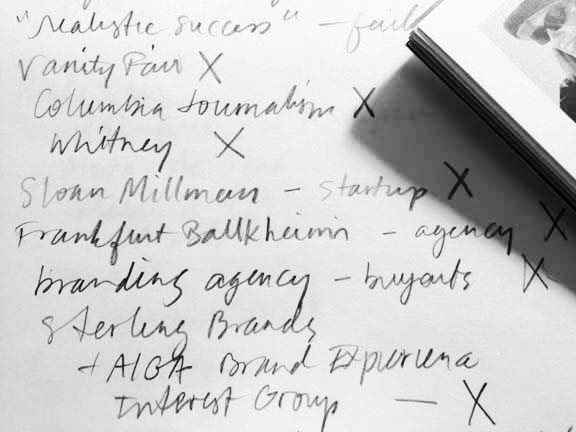 "realistic success" – fail
Vanity Fair X
Columbia Journalism X
Whitney X
Sloan Millman – startup X
Frankfurt Balkheimin – agency X
branding agency – buyouts X
Sterling Brands
+ AIGA Brand Experience
Interest Group — X